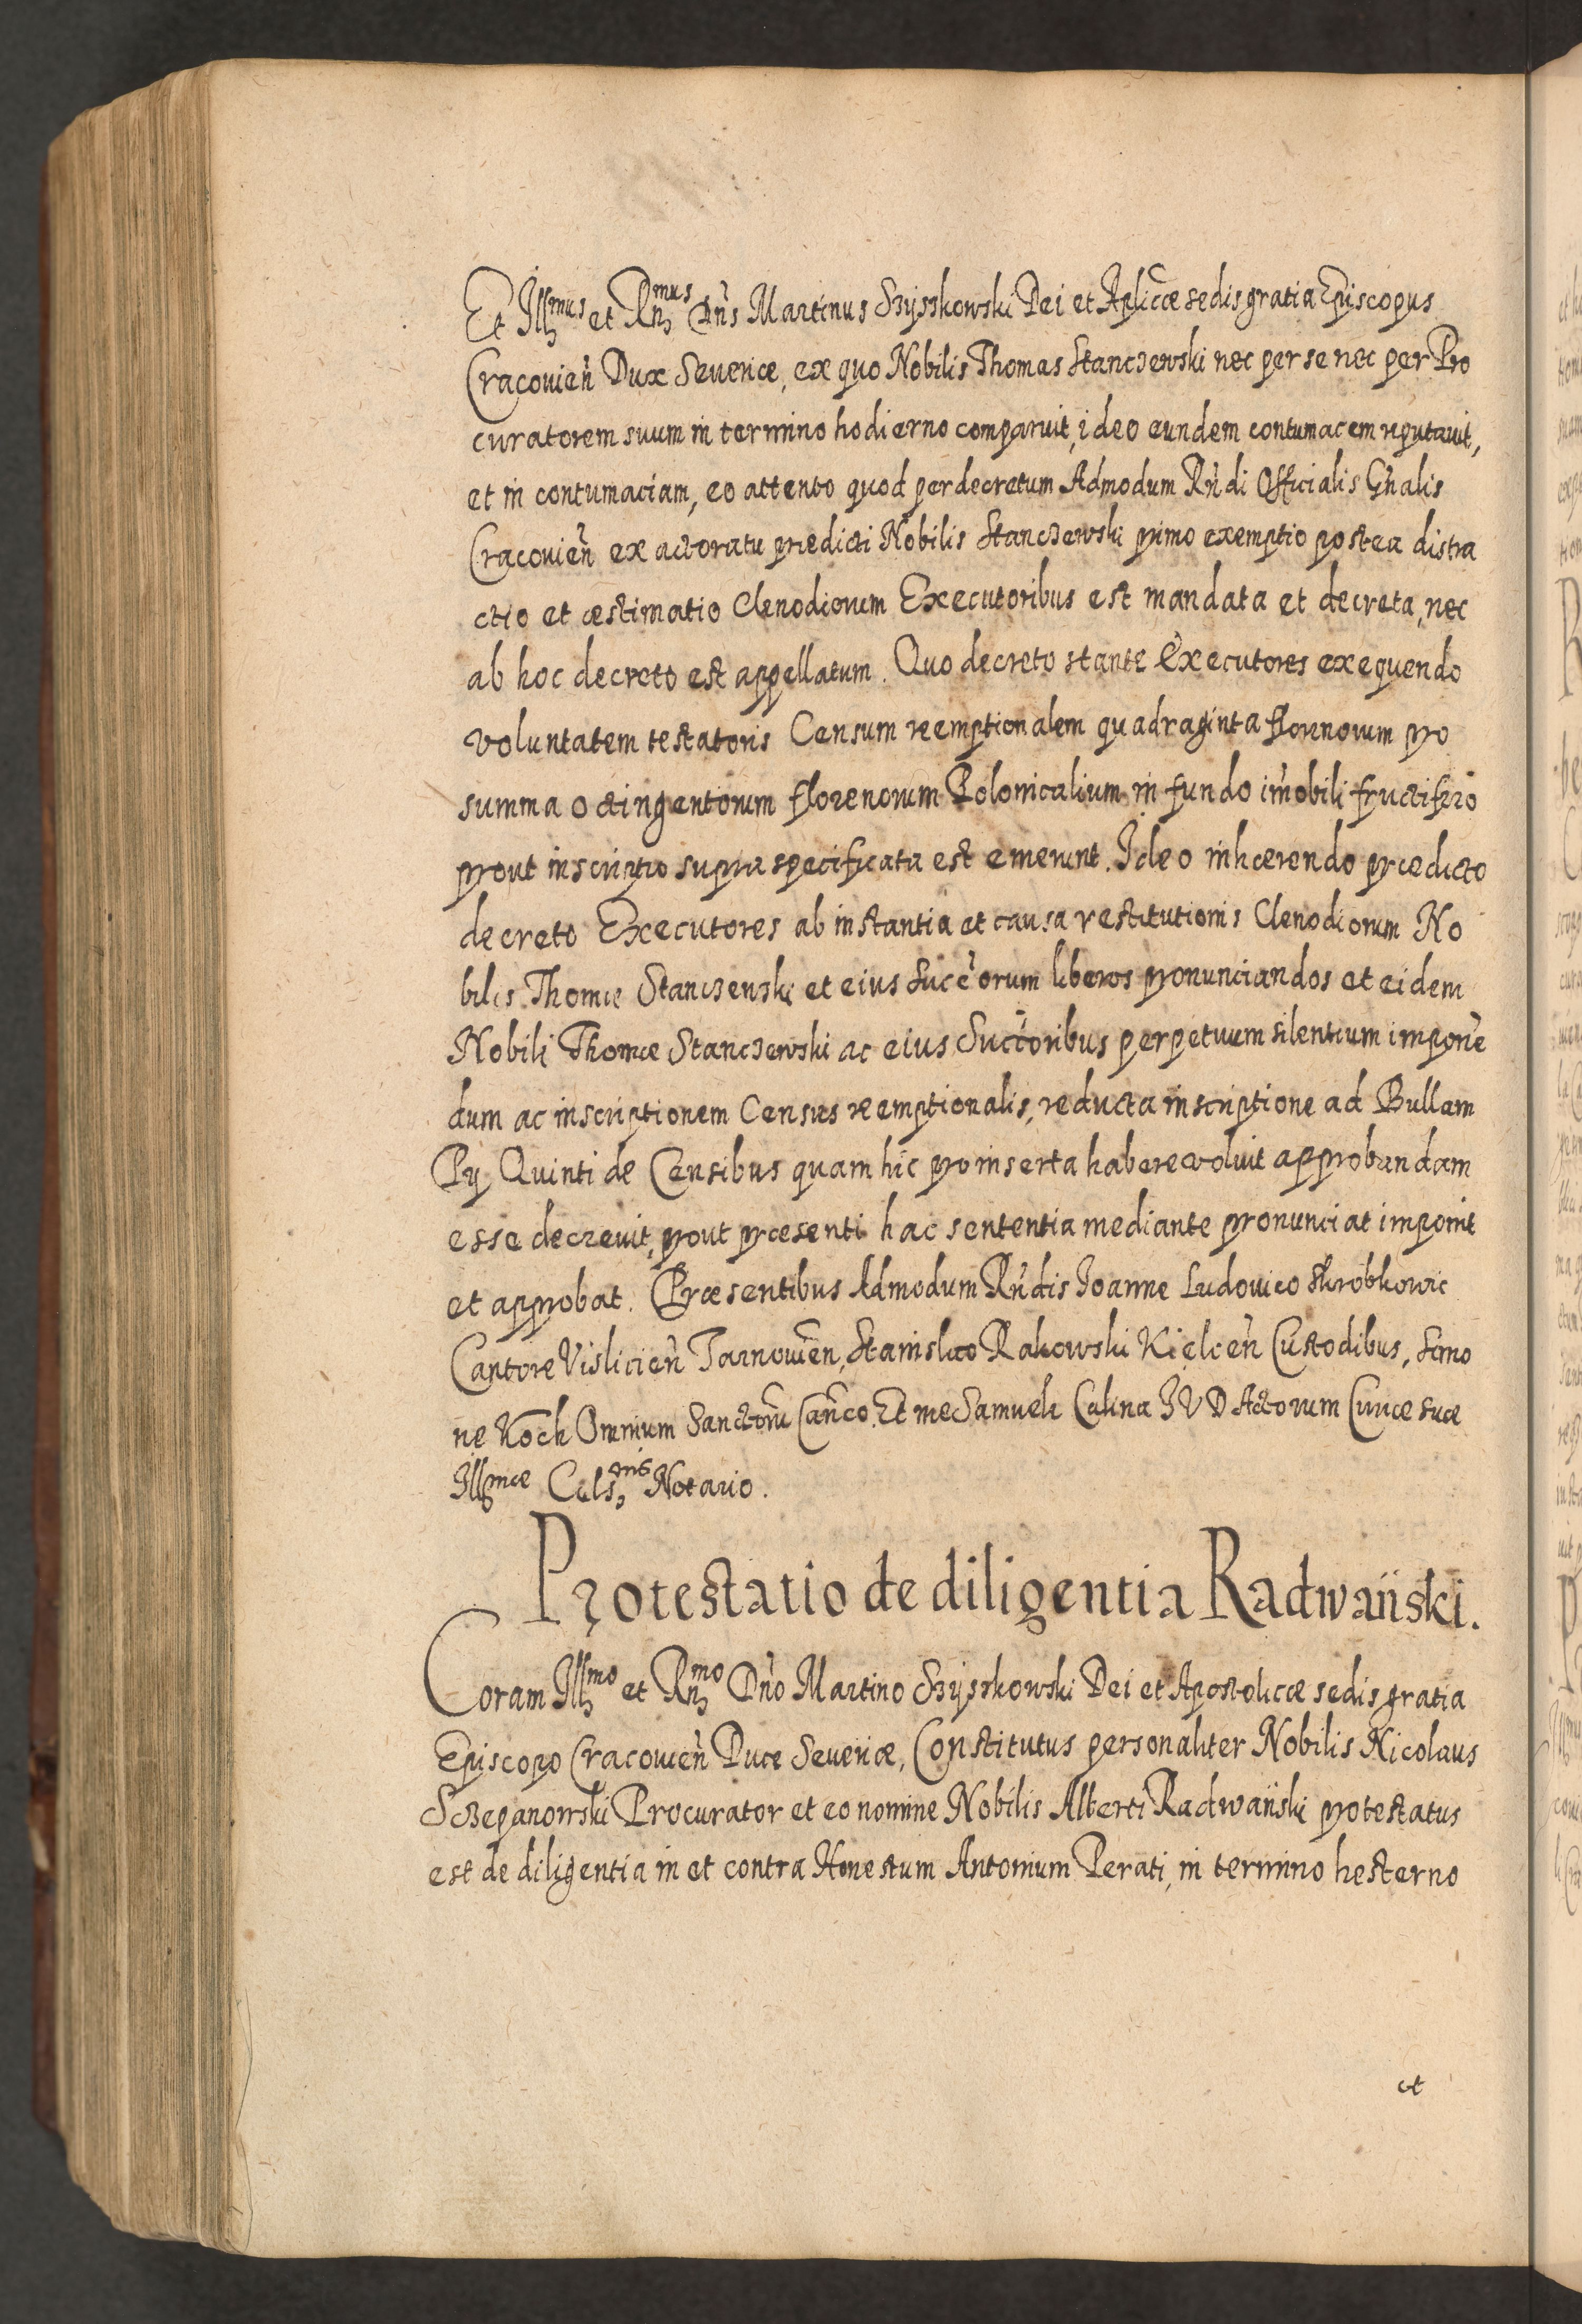 Et Illmus et Rnmus Dn̄s Martinus Szyszkowski Dei et Aplicæ sedis gratia Episcopus
Cracovien̄ Dux Severiæ, ex quo Nobilis Thomas Stanczewski nec per se nec per Pro
curatorem suum in termino hodierno comparuit, ideo eundem contumacem reputavit,
et in contumaciam, eo attento quod per decretum Admodum Rn̄di Officialis Gn̄alis
Cracovien̄ ex actoratu prædicti Nobilis Stanczewski primo exemptio postea distra
ctio et æstimatio Clenodiorum Executoribus est mandata et decreta, nec
ab hoc decreto est appellatum. Quo decreto stante Executores exequendo
voluntatem testatoris Censum reemptionalem quadraginta florenorum pro
summa octingentorum florenorum Polonicalium in fundo im̄obili fructifero
prout inscriptio supra specificata est emerunt. Ideo inhærendo prædicto
decreto Executores ab instantia et causa restitutionis Clenodiorum No
bilis Thomæ Stanczewski et eius Succ̄orum liberos pronunciandos et eidem
Nobili Thomæ Stanczewski ac eius Succ̄oribus perpetuum silentium imponē
dum ac inscriptionem Census reemptionalis, reducta inscriptione ad Bullam
Pij Quinti de Censibus quam hic pro inserta habere voluit approbandam
esse decrevit, prout præsenti hac sententia mediante pronunciat imponit
et approbat. Præsentibus Admodum Rn̄dis Joanne Ludovico Skrobkowic
Cantore Vislicien̄ Tarnovien̄, Stanislao Rakowski Kielcen̄ Custodibus, Simo
ne Koch Omnium Sanctorū Can̄co. Et me Samuele Calina J V D Actorum Curiæ suæ
Illmæ Cels̄nis Notario.
Protestatio de diligentia Radwański.
Coram Illmo et Rnmo Dn̄o Martino Szyszkowski Dei et Apostolicæ sedis gratia
Episcopo Cracovien̄ Duce Severiæ, Constitutus personaliter Nobilis Nicolaus
Sczepanowski Procurator et eo nomine Nobilis Alberti Radwański protestatus
est de diligentia in et contra Honestum Antonium Perati, in termino hesterno
et